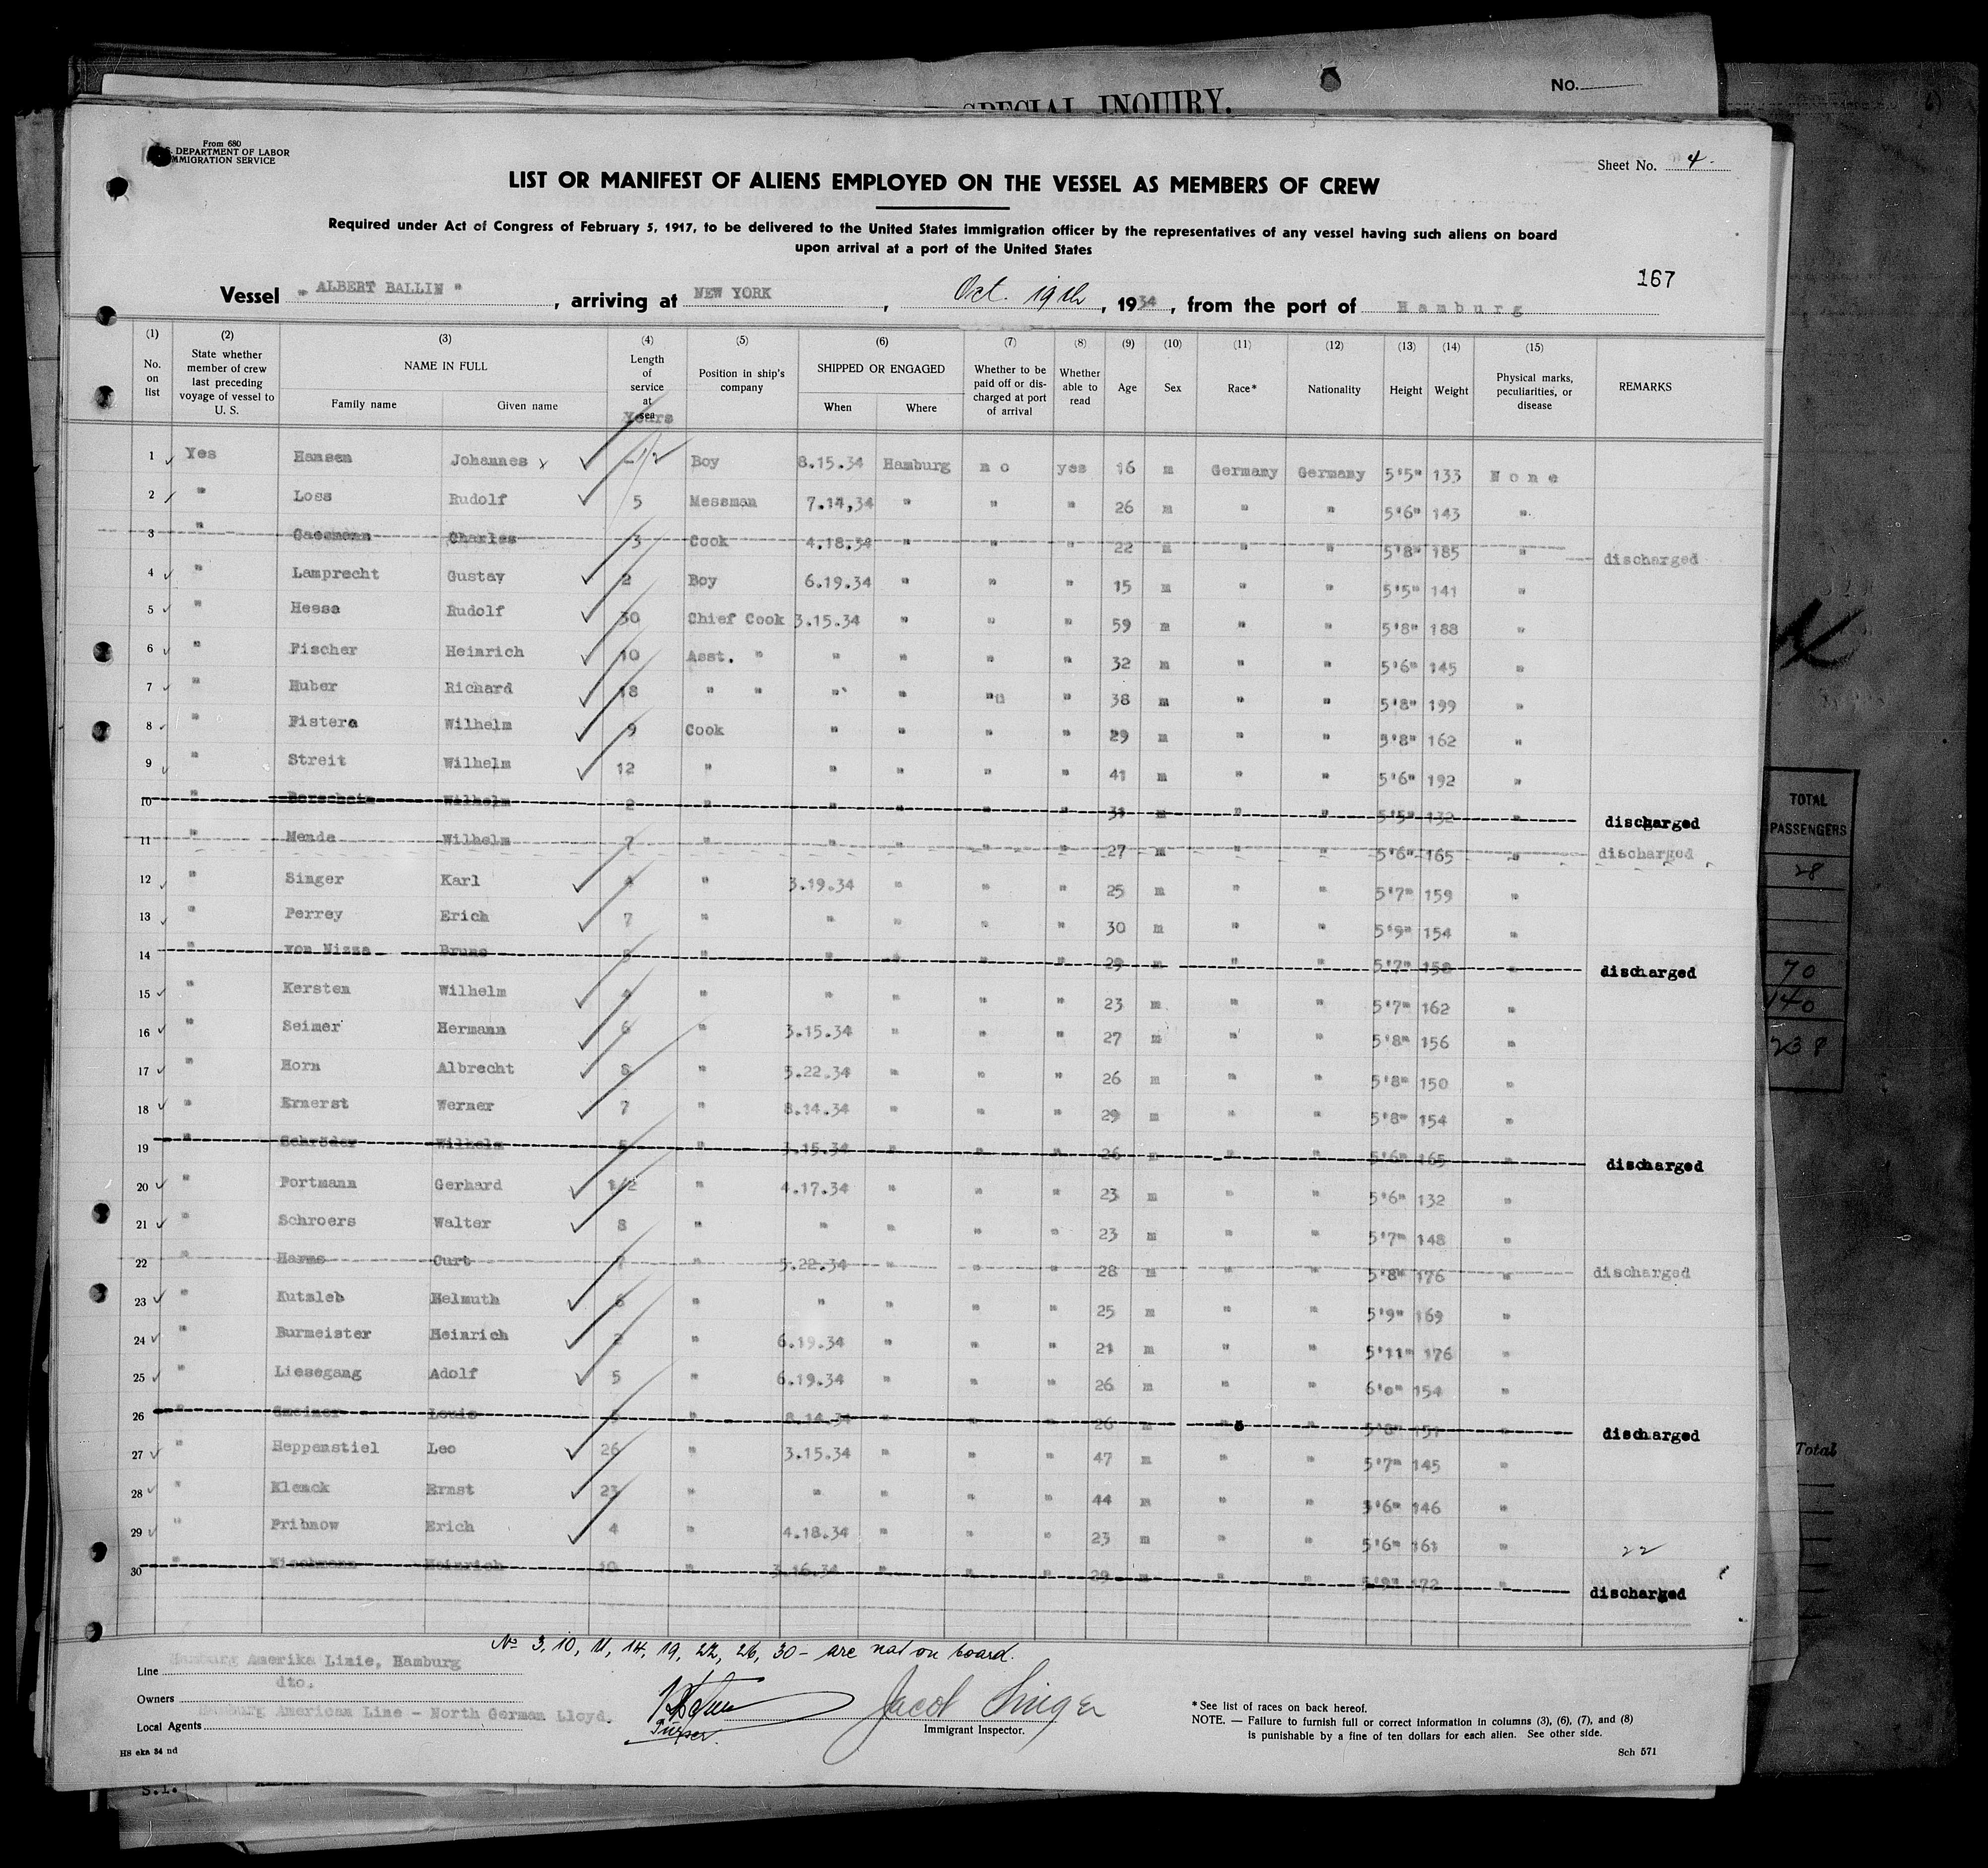 SPECIAL INQUIRY.
No.
From 680
DEPARTMENT OF LABOR
IMMIGRATION SERVICE
Sheet No. 4.
LIST OR MANIFEST OF ALIENS EMPLOYED ON THE VESSEL AS MEMBERS OF CREW
Required under Act of Congress of February 5, 1917, to be delivered to the United States immigration officer by the representatives of any vessel having such aliens on board
upon arrival at a port of the United States
167
Vessel "ALBERT BALLIN", arriving at NEW YORK, Oct. 19th, 1934, from the port of Hamburg
(1) (2) (3) (4) (5) (6) (7) (8) (9) (10) (11) (12) (13) (14) (15)
No. on list
State whether member of crew last preceding voyage of vessel to U. S.
NAME IN FULL
Family name
Given name
Length of service at sea
Years
Position in ship's company
SHIPPED OR ENGAGED
When
Where
Whether to be paid off or discharged at port of arrival
Whether able to read
Age
Sex
Race*
Nationality
Height
Weight
Physical marks, peculiarities, or disease
REMARKS
1 Yes Hansen Johannes x 1/2 Boy 8.15.34 Hamburg no yes 16 m Germany Germany 5'5" 133 None
2 " Loss Rudolf 5 Messman 7.14,34 " " " 26 m " " 5'6" 143 "
3 " Charles 3 Cook 4.18.34 " " " 22 m " " 5'8" 185 " discharged
4 " Lamprecht Gustav 2 Boy 6.19.34 " " " 15 m " " 5'5" 141 "
5 " Hesse Rudolf 30 Chief Cook 3.15.34 " " " 59 m " " 5'8" 188 "
6 " Fischer Heinrich 10 Asst. " " " " " 32 m " " 5'6" 145 "
7 " Huber Richard 18 " " " " " " 38 m " " 5'8" 199 "
8 " Fistera Wilhelm 9 Cook " " " " 29 m " " 5'8" 162 "
9 " Streit Wilhelm 12 " " " " " 41 m " " 5'6" 192 "
10 " Wilhelm 2 " " " " " 31 m " " 5'5" 132 " discharged
11 " Menda Wilhelm 7 " " " " " 27 m " " 5'6" 165 " discharged
12 " Singer Karl 4 " 3.19.34 " " " 25 m " " 5'7" 159 "
13 " Perrey Erich 7 " " " " " 30 m " " 5'9" 154 "
14 " von Nizza Bruno " " " " " 29 m " " 5'7" 158 " discharged
15 " Kersten Wilhelm 4 " " " " " 23 m " " 5'7" 162 "
16 " Seimer Hermann 6 " 3.15.34 " " " 27 m " " 5'8" 156 "
17 " Horn Albrecht 8 " 5.22.34 " " " 26 m " " 5'8" 150 "
18 " Ernerst Werner 7 " 8.14.34 " " " 29 m " " 5'8" 154 "
19 " Schröder Wilhelm 5 " 3.15.34 " " " 26 m " " 5'6" 165 " discharged
20 " Portmann Gerhard 1/2 " 4.17.34 " " " 23 m " " 5'6" 132 "
21 " Schroers Walter 8 " " " " " 23 m " " 5'7" 148 "
22 " Harms Curt 7 " 5.22.34 " " " 28 m " " 5'8" 176 " discharged
23 " Kutzleb Helmuth " " " " " 25 m " " 5'9" 169 "
24 " Burmeister Heinrich 2 " 6.19.34 " " " 21 m " " 5'11" 176 "
25 " Liesegang Adolf 5 " 6.19.34 " " " 26 m " " 6'0" 154 "
26 " Louis " 8.14.34 " " " 26 m " " 5'8" 151 " discharged
27 " Heppenstiel Leo 26 " 3.15.34 " " " 47 m " " 5'7" 145 "
28 " Klenck Ernst 23 " " " " " 44 m " " 5'6" 146 "
29 " Pribnow Erich 4 " 4.18.34 " " " 23 m " " 5'6" 161 "
22
30 " Heinrich 10 " 3.16.34 " " " 29 m " " 5'9" 172 " discharged
No 3, 10, 11, 14, 19, 22, 26, 30 - are not on board.
Line Hamburg Amerika Linie, Hamburg
Owners dto.
Local Agents Hamburg American Line - North German Lloyd.
Purser.
Jacob Singer
Immigrant Inspector.
*See list of races on back hereof.
NOTE. — Failure to furnish full or correct information in columns (3), (6), (7), and (8)
is punishable by a fine of ten dollars for each alien. See other side.
HS eka 34 nd
Sch 571
S.I.
TOTAL
PASSENGERS
28
70
140
238
Total